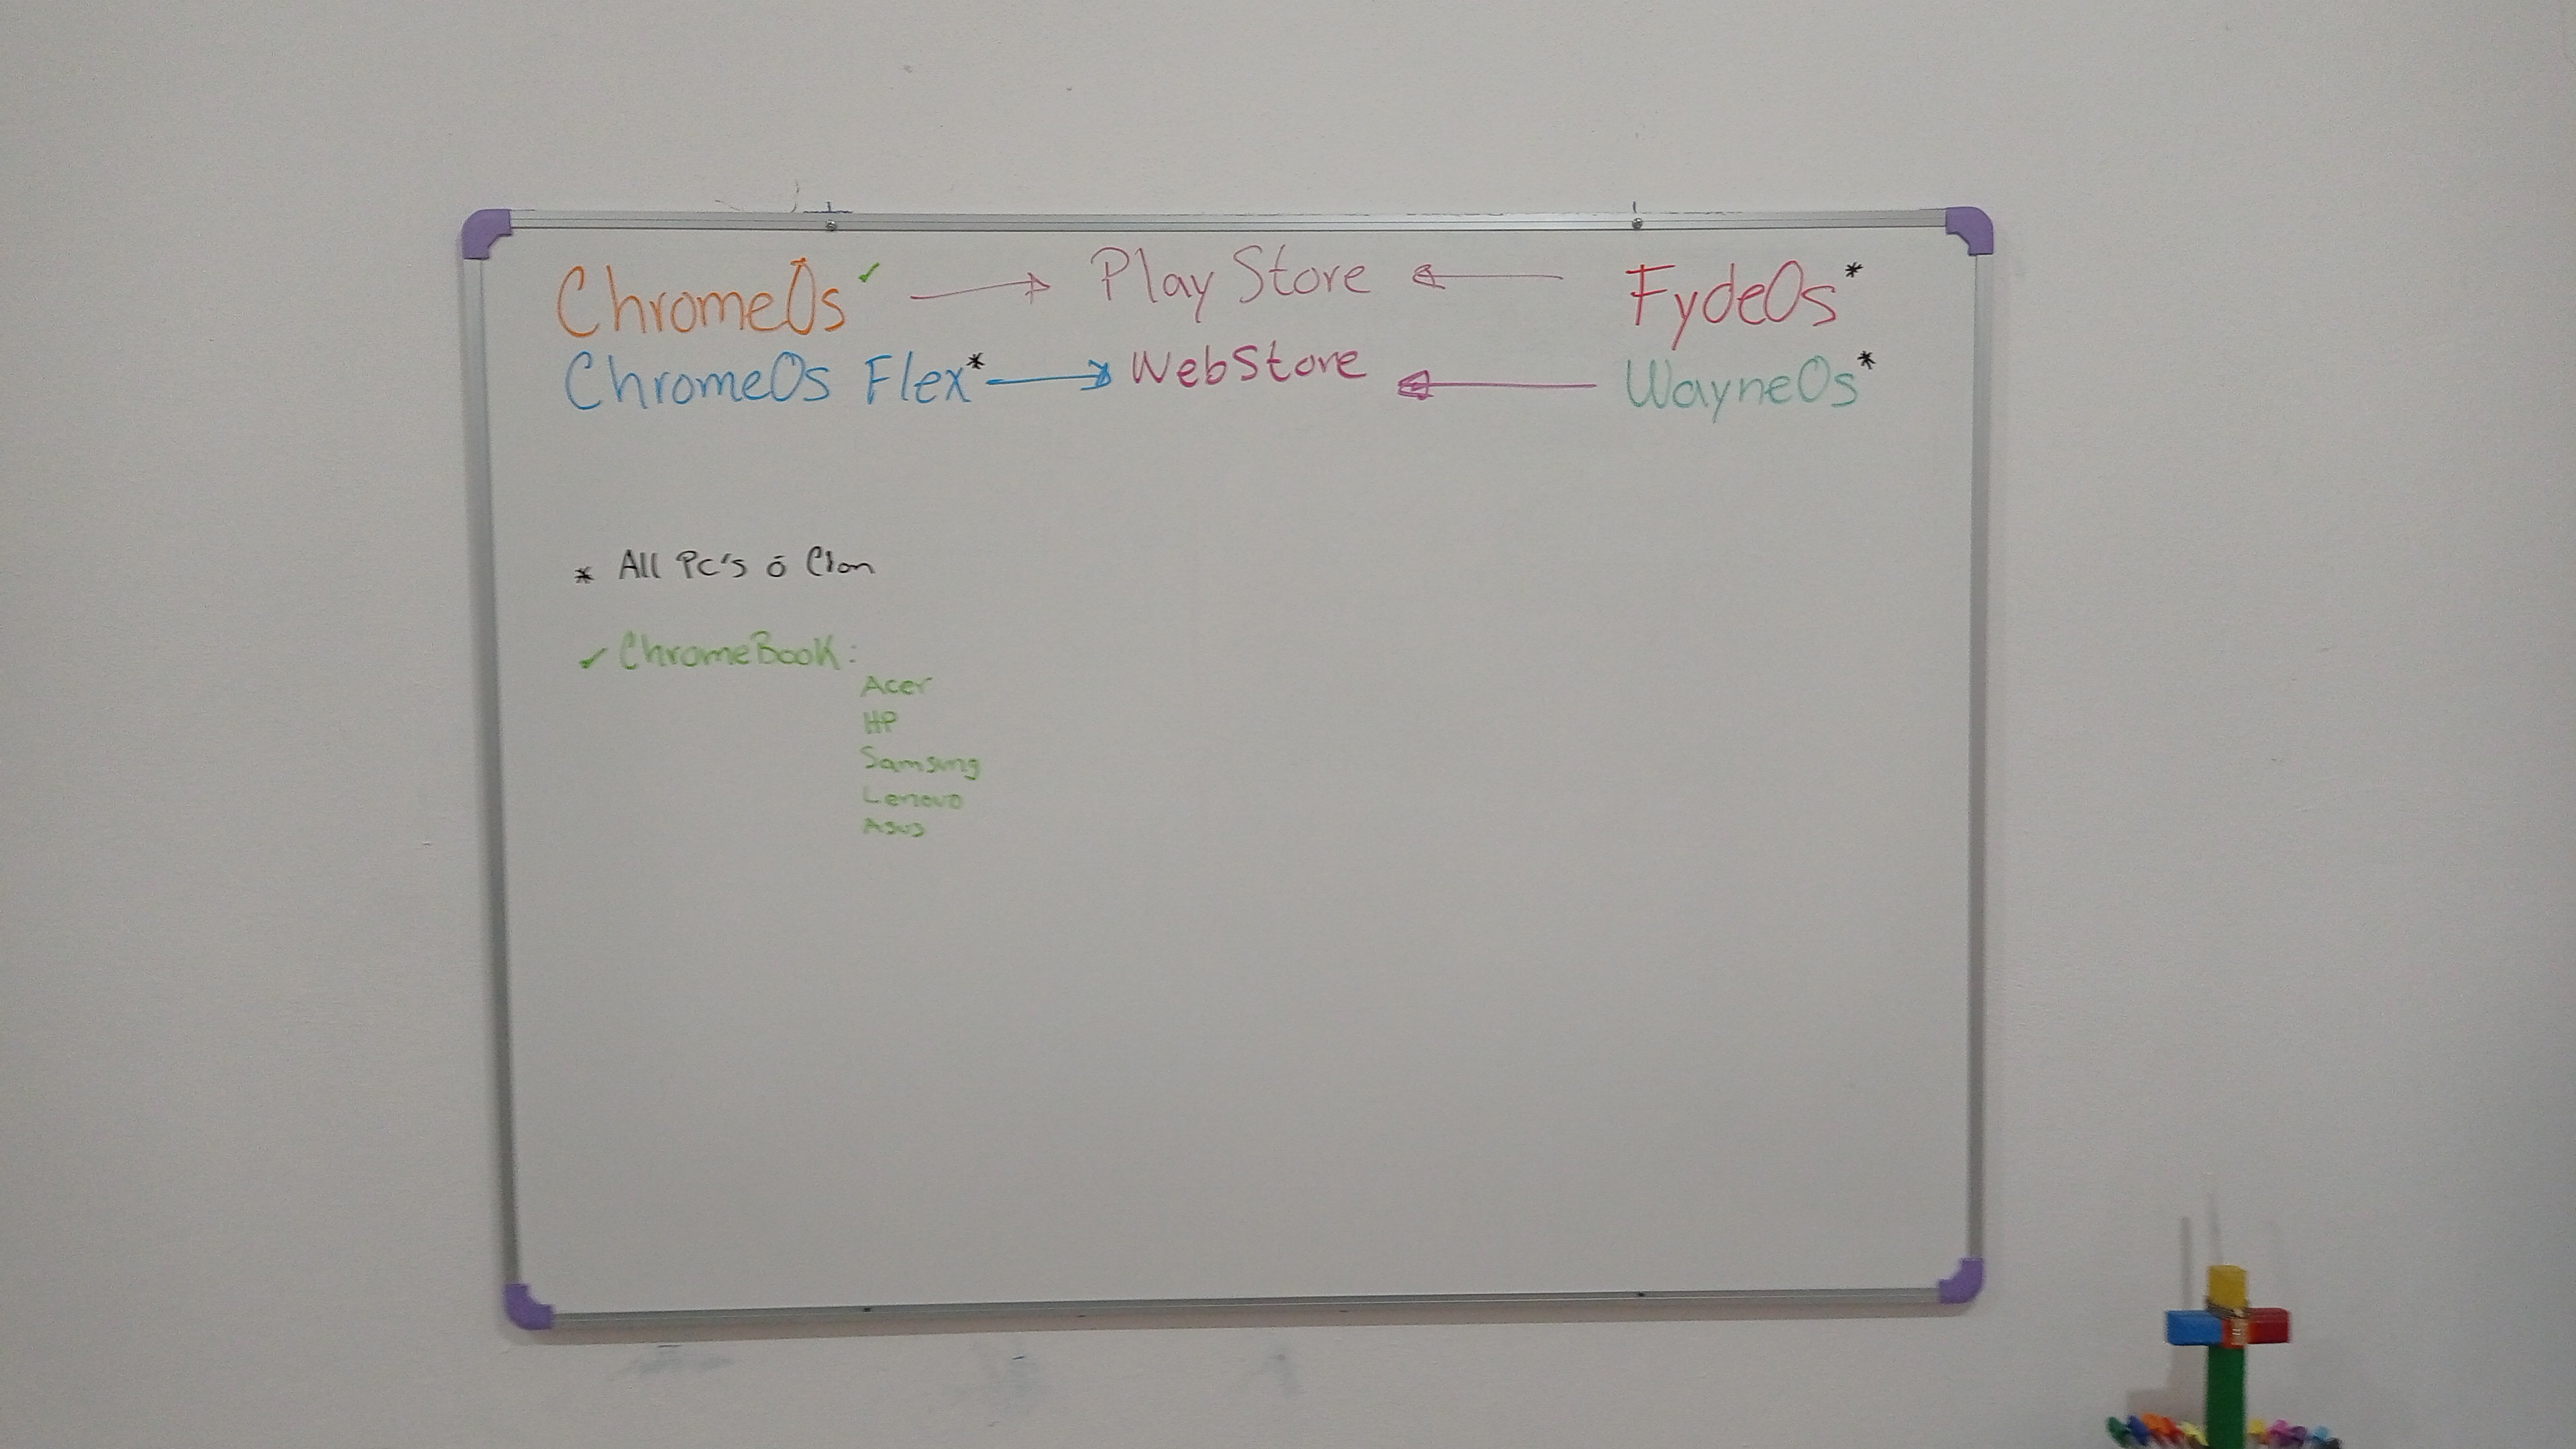 ChromeOs✓ → Play Store ← FydeOs*
ChromeOs Flex* → WebStore ← WayneOs*
* All Pc's ó Clon
✓ ChromeBook:
Acer
HP
Samsung
Lenovo
Asus